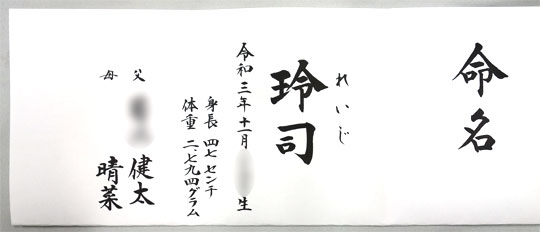 命名
れいじ
玲司
令和三年十一月 生
身長 四七センチ
体重 二、七九四グラム
父 健太
母 晴菜